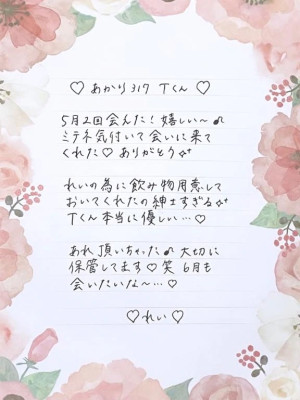 ♡ あかり317 Tくん ♡
5月2回会えた！嬉しい〜♪
ミテネ気付いて会いに来て
くれた♡ ありがとう✨
れいの為に飲み物用意して
おいてくれたの紳士すぎる✨
Tくん本当に優しい…♡
あれ頂いちゃった♪ 大切に
保管してます♡笑 6月も
会いたいな〜…♡
♡れい♡